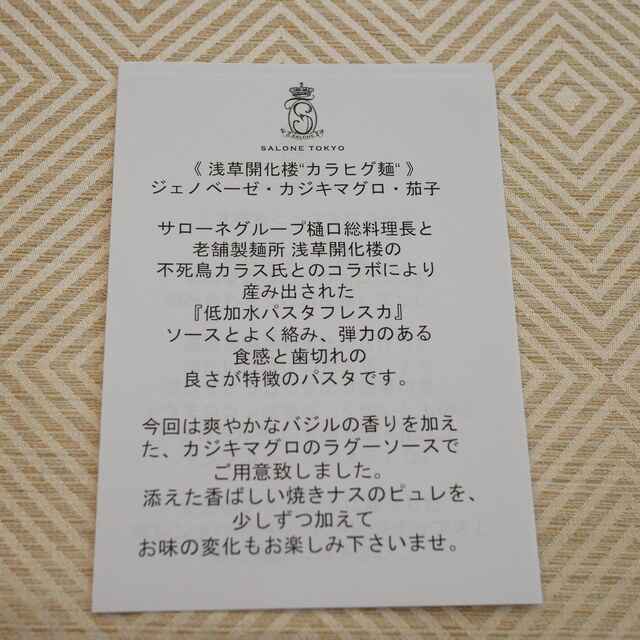 SALONE TOKYO
《 浅草開化楼“カラヒグ麺“ 》
ジェノベーゼ・カジキマグロ・茄子
サローネグループ樋口総料理長と
老舗製麺所 浅草開化楼の
不死鳥カラス氏とのコラボにより
産み出された
『低加水パスタフレスカ』
ソースとよく絡み、弾力のある
食感と歯切れの
良さが特徴のパスタです。
今回は爽やかなバジルの香りを加え
た、カジキマグロのラグーソースで
ご用意致しました。
添えた香ばしい焼きナスのピュレを、
少しずつ加えて
お味の変化もお楽しみ下さいませ。